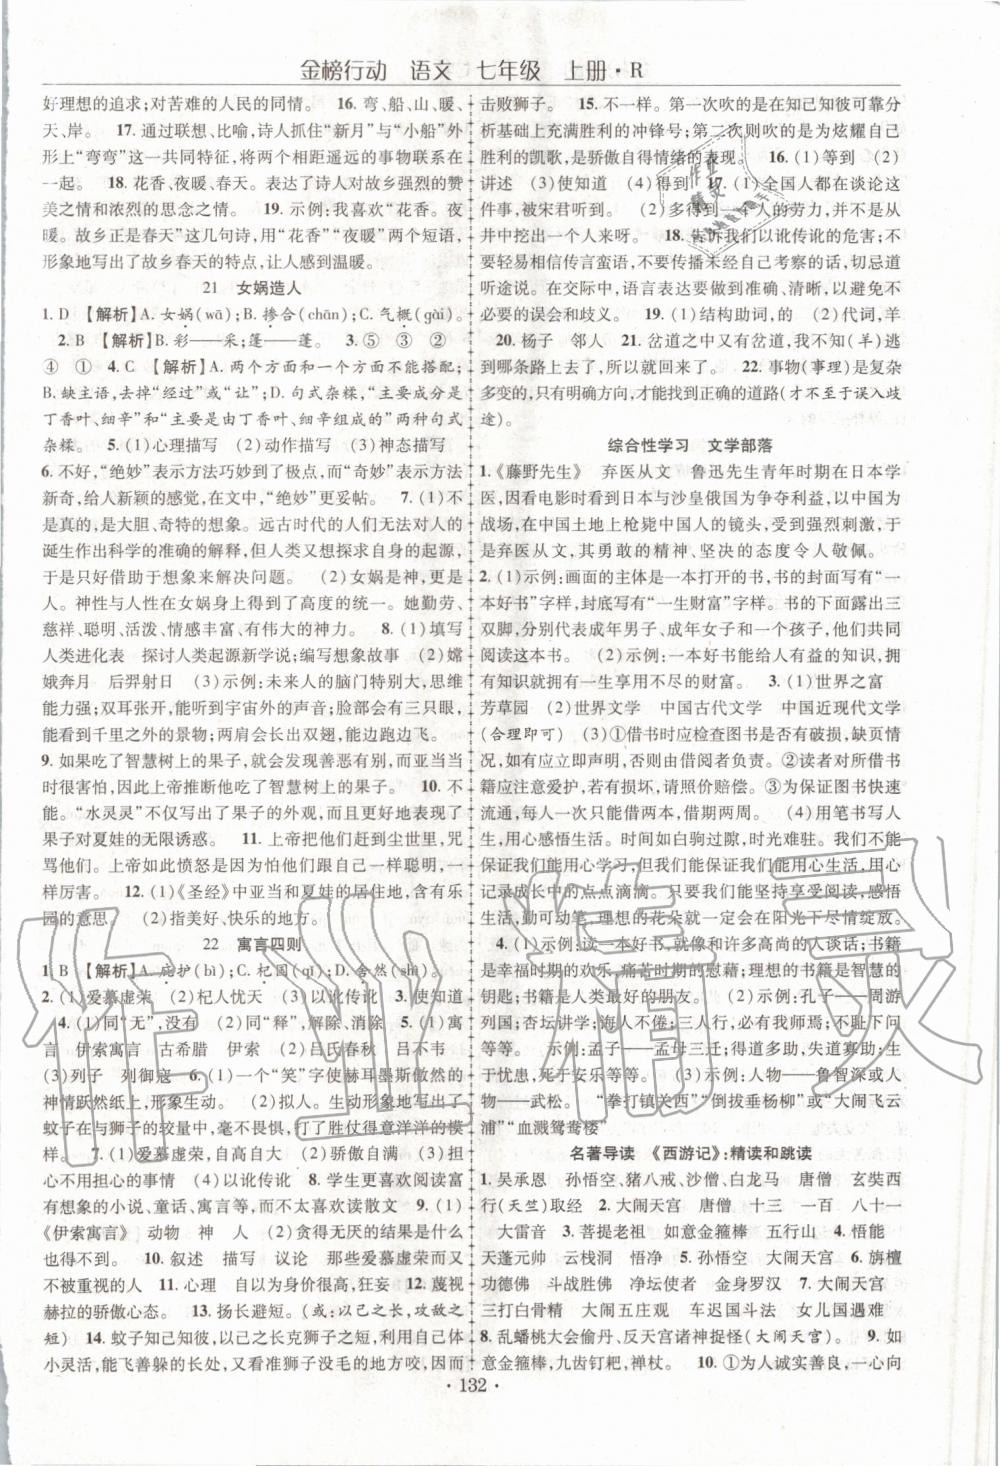 金榜行动 语文 七年级 上册·R
好理想的追求;对苦难的人民的同情。 16. 弯、船、山、暖、
天、岸。 17. 通过联想、比喻,诗人抓住“新月”与“小船”外
形上“弯弯”这一共同特征,将两个相距遥远的事物联系在
一起。 18. 花香、夜暖、春天。表达了诗人对故乡强烈的赞
美之情和浓烈的思念之情。 19. 示例:我喜欢“花香。夜
暖。故乡正是春天”这几句诗,“花香”“夜暖”两个短语,
形象地写出了故乡春天的特点,让人感到温暖。
21 女娲造人
1. D 【解析】A. 女娲(wā);B. 掺合(chān);C. 气概(gài)。
2. B 【解析】B. 彩——采;篷——蓬。 3. ⑤ ③ ②
④ ① 4. C 【解析】A. 两个方面和一个方面不能搭配;
B. 缺主语,去掉“经过”或“让”;D. 句式杂糅,“主要成分是
丁香叶、细辛”和“主要是由丁香叶、细辛组成的”两种句式
杂糅。 5. (1)心理描写 (2)动作描写 (3)神态描写
6. 不好,“绝妙”表示方法巧妙到了极点。而“奇妙”表示方法
新奇,给人新颖的感觉,在文中,“绝妙”更妥帖。 7. (1)不
是真的,是大胆、奇特的想象。远古时代的人们无法对人的
诞生作出科学的准确的解释,但人类又想探求自身的起源,
于是只好借助于想象来解决问题。 (2)女娲是神,更是
人。神性与人性在女娲身上得到了高度的统一。她勤劳、
慈祥、聪明、活泼、情感丰富,有伟大的神力。 8. (1)填写
人类进化表 探讨人类起源新学说;编写想象故事 (2)嫦
娥奔月 后羿射日 (3)示例:未来人的脑门特别大,思维
能力强;双耳张开,能听到宇宙外的声音;脸部会有三只眼,
能看到千里之外的景物;两肩会长出双翅,能飞翔。
9. 如果吃了智慧树上的果子,就会发现善恶有别,有自我意
识,因此上帝不让亚当和夏娃吃智慧树上的果子。 10. 不
能。“水灵灵”不仅写出了果子的外形,更写出了智慧树的
果子对夏娃的无限诱惑。 11. 上帝把他们赶到尘世里,咒
骂他们。上帝如此愤怒是因为怕他们跟自己一样聪明,一
样厉害。 12. (1)《圣经》中亚当和夏娃的居住地,含有乐
园的意思 (2)指美好、快乐的地方。
22 寓言四则
1. B 【解析】A. 庇护(bì);C. 杞国(qǐ);D. 舍然(shì)。
2. (1)爱慕虚荣 (2)杞人忧天 (3)以讹传讹 3. 使知道
4. (1)同“无”,没有 (2)同“释”,解除、消除 5. (1)寓
言 伊索寓言 古希腊 伊索 (2)吕氏春秋 吕不韦
(3)列子 列御寇 6. (1)一个“笑”字使赫耳墨斯傲然的
神情跃然纸上,形象生动。 (2)拟人。生动形象地写出了
蚊子在与狮子的较量中,毫不畏惧,打了胜仗得意洋洋的模
样。 7. (1)爱慕虚荣,自高自大 (2)骄傲自满 (3)担心
不用担心的事情 (4)以讹传讹 8. 学生更喜欢阅读哪类
书? 学生喜欢的阅读,童话、寓言等;不喜欢读散文 9. (1)
《伊索寓言》 动物 神 人 (2)贪得无厌的结果是什么
也得不到。 10. 叙述 描写 议论 那些爱慕虚荣而不
被重视的人 11. 心理 自以为非常高贵,狂妄 12. 蔑视
赫拉的骄傲心态。 13. 扬长避短。(或:以己之长攻敌之
短) 14. 蚊子知己知彼,以己之长克狮子之短,利用自己体
小灵活,能飞善躲的长处,又看准狮子没毛的地方咬,因而
击败狮子。 15. 不一样。第一次吹的是自己知彼可靠分
析基础上充满胜利的冲锋号;第二次则吹的是为炫耀自己
胜利的凯歌,是骄傲自得情绪的表现。 16. (1)等到 (2)
讲述 (3)使知道 (4)得到 17. (1)全国人都在谈论这
件事,被宋君听到。 (2)多得到一个人的劳力,并非是从
井中挖出一个人来呀。 18. 告诉我们以讹传讹的危害;一
切恶果都是轻易相信传言蛮语,传播未经自己考察的话,切
忌道听途说。在交际中,语言要表达准确、清晰,以免造成不
必要的误会和歧义。 19. (1)结构助词,的 (2)代词,羊
20. 杨子 邻人 21. 岔道之中又有岔道,我不知(羊)逃入
哪条路上去了,所以就回来了。 22. 事物(事理)是复杂
多变的,只有明确方向,才能找到正确的道路(才不至于误入歧
途)。
综合性学习 文学部落
1. 《藤野先生》 弃医从文 鲁迅先生青年时期在日本学
医,因看电影时看到日本与沙皇俄国为争夺利益,以中国为
战场,在中国土地上枪毙中国人的镜头,受到强烈刺激,于
是弃医从文,其勇敢的精神、坚决的态度令人敬佩。
2. (1)示例:画面的主体是一本打开的书,书的封面写有“一
本好书”字样,封底写有“一生财富”字样。书的下面露出三
双脚,分别代表成年男子、成年女子和一个孩子,他们共同
阅读这本书。 (2)示例:一本好书能给人有益的知识,阅
读并拥有一生享用不尽的财富。 3. (1)世界之富
芳草园 (2)世界文学 中国古代文学 中国近现代文学
(合理即可) (3)示例:①借书时应检查图书是否有破损、缺页情
况,如有应立即声明,否则由借阅者负责。②读者对所借书
籍应注意爱护,若有损坏,随时赔偿。③为保证图书快速
流通,每人一次只能借两本,借期两周。 (4)用笔来书写人
生,用心感悟生活。示例:时间如白驹过隙,时光难驻。我不能
保证我们能用心学习,但我们能保证我们能用心生活,用笔
记录成长中的点点滴滴。只要我们能坚持享受阅读,感悟
生活,勤动笔,理想的花朵就一定会在阳光下尽情绽放。
4. (1)示例:读一本好书,就像和许多高尚的人谈话;书籍
是幸福时期的欢乐,痛苦时期的慰藉;理想的书籍是智慧的
钥匙;书籍是人类最好的朋友。 (2)示例:孔子——周游
列国;杏坛讲学;诲人不倦;三人行,必有我师焉;不耻下问
等等。 示例:孟子——孟母三迁;得道多助,失道寡助;生于忧
患,死于安乐等等。 (3)示例:人物——鲁智深或人
物——武松。“拳打镇关西”“倒拔垂杨柳”或“大闹飞云
浦”“血溅鸳鸯楼”
名著导读 《西游记》:精读和跳读
1. 吴承恩 孙悟空、猪八戒、沙和尚、白龙马 唐僧 玄奘西
行(天竺)取经 2. 大闹天宫 唐僧 十三 一百 八十一
大雷音 3. 菩提老祖 如意金箍棒 五行山 4. 悟能
天蓬元帅 云栈洞 悟净 5. 孙悟空 大闹天宫 6. 旃檀
功德佛 斗战胜佛 净坛使者 金身罗汉 7. 大闹天宫
三打白骨精 大闹五庄观 车迟国斗法 女儿国遇难
8. 乱蟠桃大会偷丹、反天宫诸神捉怪(大闹天宫) 9. 如
意金箍棒,九齿钉耙,禅杖。 10. ①为人诚实善良,一心向
· 132 ·